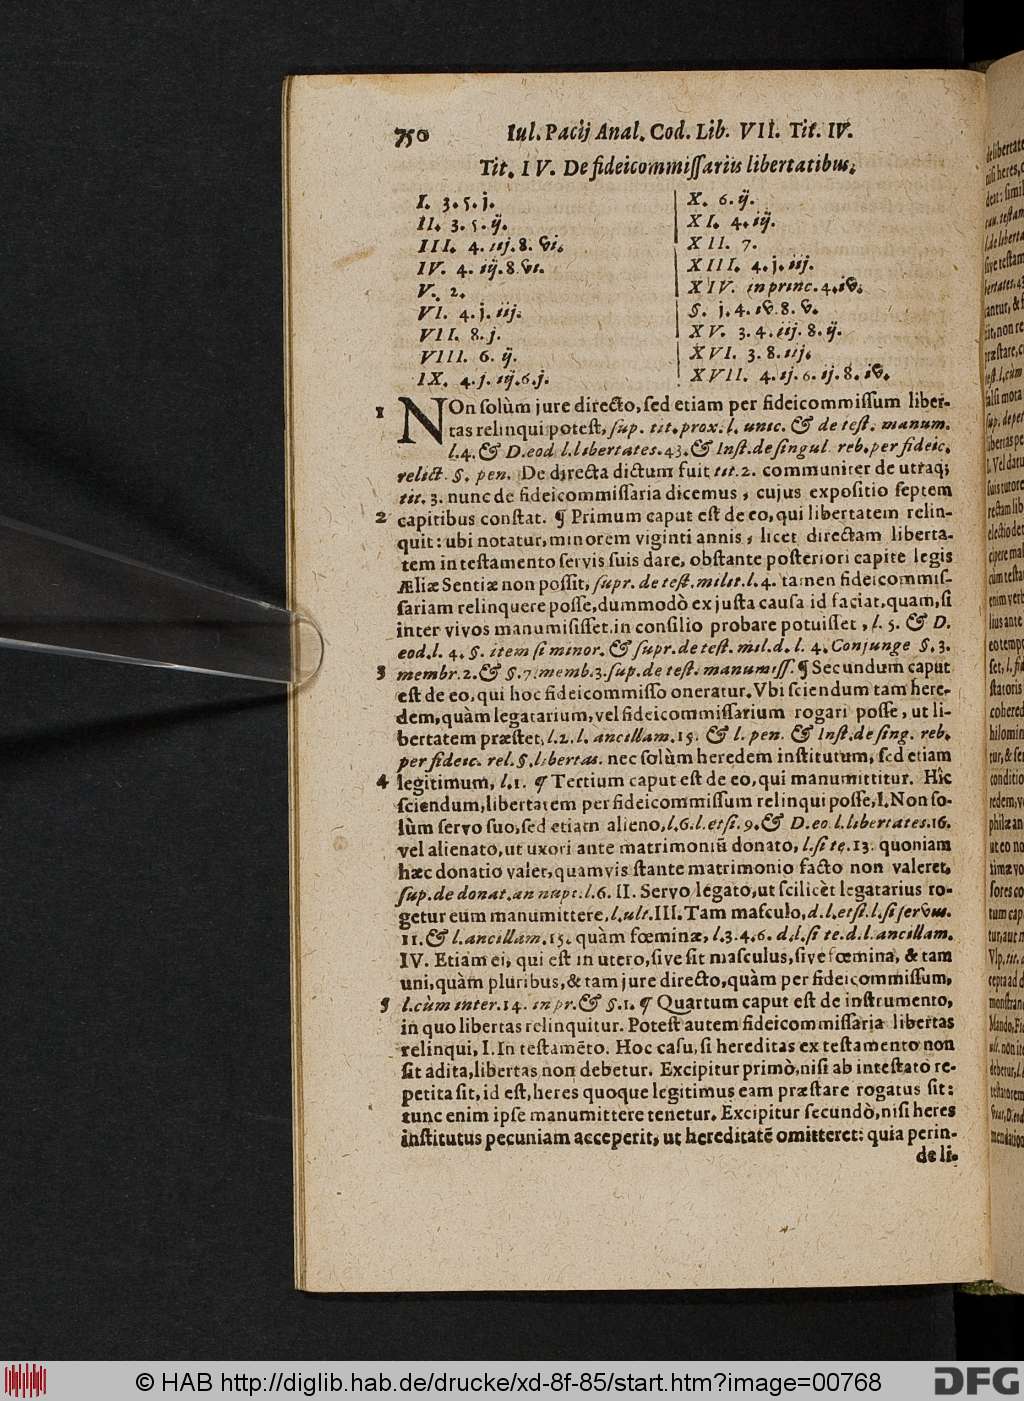 750 Iul. Pacij Anal. Cod. Lib. VII. Tit. IV.
Tit. IV. De fideicommiſſariis libertatibus.
I. 3. 5. j.
II. 3. 5. ij.
III. 4. iij. 8. vi.
IV. 4. iij. 8. vi.
V. 2.
VI. 4. j. iij.
VII. 8. j.
VIII. 6. ij.
IX. 4. j. iij. 6. j.
X. 6. ij.
XI. 4. iij.
XII. 7.
XIII. 4. j. iij.
XIV. in princ. 4. iv.
§. j. 4. iv. 8. v.
XV. 3. 4. iij. 8. ij.
XVI. 3. 8. iij.
XVII. 4. ij. 6. ij. 8. iv.
1 NOn ſolùm jure directo, ſed etiam per fideicommiſſum liber-
tas relinqui poteſt, ſup. tit. prox. l. unic. & de teſt. manum.
l. 4. & D. eod. l. libertates. 43. & Inſt. de ſingul. reb. per fideic.
relict. §. pen. De directa dictum fuit tit. 2. communiter de utraq;
tit. 3. nunc de fideicommiſſaria dicemus, cujus expoſitio ſeptem
2 capitibus conſtat. ¶ Primum caput eſt de eo, qui libertatem relin-
quit: ubi notatur, minorem viginti annis, licet directam liberta-
tem in teſtamento ſervis ſuis dare, obſtante poſteriori capite legis
Æliæ Sentiæ non poſſit, ſupr. de teſt. milit. l. 4. tamen fideicommiſ-
ſariam relinquere poſſe, dummodò ex juſta cauſa id faciat, quam, ſi
inter vivos manumiſiſſet, in conſilio probare potuiſſet, l. 5. & D.
eod. l. 4. §. item ſi minor. & ſupr. de teſt. mil. d. l. 4. Conjunge §. 3.
3 membr. 2. & §. 7. memb. 3. ſup. de teſt. manumiſſ. ¶ Secundum caput
eſt de eo, qui hoc fideicommiſſo oneratur. Vbi ſciendum tam here-
dem, quàm legatarium, vel fideicommiſſarium rogari poſſe, ut li-
bertatem præſtet, l. 2. l. ancillam. 15. & l. pen. & Inſt. de ſing. reb.
per fideic. rel. §. libertas. nec ſolùm heredem inſtitutum, ſed etiam
4 legitimum, l. 1. ¶ Tertium caput eſt de eo, qui manumittitur. Hîc
ſciendum, libertatem per fideicommiſſum relinqui poſſe, I. Non ſo-
lùm ſervo ſuo, ſed etiam alieno, l. 6. l. etſi. 9. & D. eo. l. libertates. 16.
vel alienato, ut uxori ante matrimoniũ donato, l. ſi te. 13. quoniam
hæc donatio valet, quamvis ſtante matrimonio facto non valeret,
ſup. de donat. an nupt. l. 6. II. Servo legato, ut ſcilicet legatarius ro-
getur eum manumittere, l. ult. III. Tam maſculo, d. l. etſi. l. ſi ſervus.
11. & l. ancillam. 15. quàm fœminæ, l. 3. 4. 6. d. l. ſi te. d. l. ancillam.
IV. Etiam ei, qui eſt in utero, ſive ſit maſculus, ſive fœmina, & tam
uni, quàm pluribus, & tam jure directo, quàm per fideicommiſſum,
5 l. cùm inter. 14. in pr. & §. 1. ¶ Quartum caput eſt de inſtrumento,
in quo libertas relinquitur. Poteſt autem fideicommiſſaria libertas
relinqui, I. In teſtamẽto. Hoc caſu, ſi hereditas ex teſtamento non
ſit adita, libertas non debetur. Excipitur primò, niſi ab inteſtato re-
petita ſit, id eſt, heres quoque legitimus eam præſtare rogatus ſit:
tunc enim ipſe manumittere tenetur. Excipitur ſecundò, niſi heres
inſtitutus pecuniam acceperit, ut hereditatẽ omitteret: quia perin-
de li-
© HAB http://diglib.hab.de/drucke/xd-8f-85/start.htm?image=00768
DFG